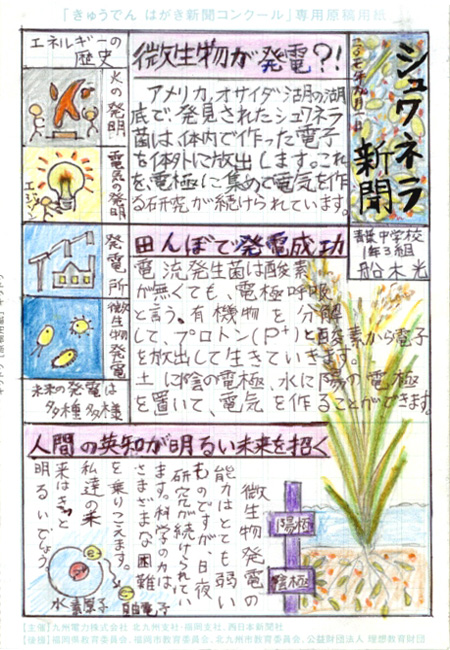 「きゅうでん はがき新聞コンクール」専用原稿用紙
シュワネラ
新聞
青葉中学校
1年3組
船木光
微生物が発電?!
アメリカ、オサイダ湖の湖
底で、発見されたシュワネラ
菌は、体内で作った電子
を体外に放出します。これ
を、電極に集めて電気を作
る研究が続けられています。
エネルギーの
歴史
火の発明
電気の発明
エジソン
発電所
微生物発電
未来の発電は
多種多様
田んぼで発電成功
電流発生菌は酸素
が無くても、電極呼吸
と言う、有機物を分解
して、プロトン(P+)と酸素から電子
を放出して生きていきます。
土に陰の電極、水に陽の電極
を置いて、電気を作ることができます。
人間の英知が明るい未来を招く
微生物発電の
能力はとても弱い
ものですが、日夜
研究が続けられてい
ます。科学の力は、
さまざまな困難
を乗りこえます。
私達の未
来はきっと
明るいでしょう。
陽極
陰極
水素原子
自由電子
【主催】九州電力株式会社 北九州支社・福岡支社、西日本新聞社
【後援】福岡県教育委員会、福岡市教育委員会、北九州市教育委員会、公益財団法人 理想教育財団